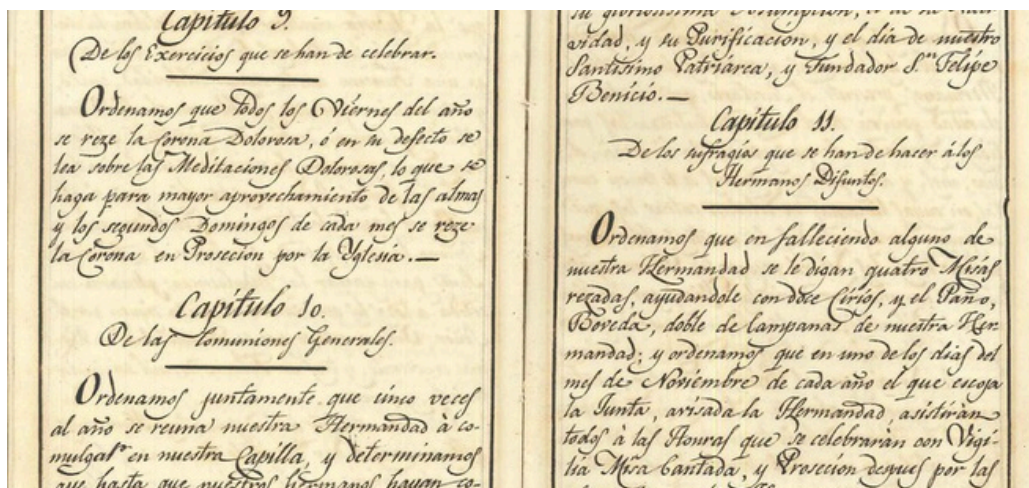 Capitulo 9.
De los Exercicios que se han de celebrar.
Ordenamos que todos los Viernes del año
se reze la Corona Dolorosa, ó en su defecto se
lea sobre las Meditaciones Dolorosas, lo que se
haga para mayor aprovechamiento de las almas
y los segundos Domingos de cada mes se reze
la Corona en Prosecion por la Yglesia.—
Capitulo 10.
De las Comuniones Generales.
Ordenamos juntamente que cinco veces
al año se reuna nuestra Hermandad à co-
mulgar en nuestra Capilla, y determinamos
que hasta que nuestros hermanos hayan co-
su gloriosissima Assumpcion, de su Nati-
vidad, y su Purificacion, y el dia de nuestro
Santissimo Patriarca, y Fundador S.ⁿ Felipe
Benicio.—
Capitulo 11.
De los sufragios que se han de hacer á los
Hermanos Difuntos.
Ordenamos que en falleciendo alguno de
nuestra Hermandad se le digan quatro Misas
rezadas, ayudandole con doce Cirios, y el Paño,
Boveda, doble de campanas de nuestra Her-
mandad; y ordenamos que en uno de los dias del
mes de Noviembre de cada año el que escoja
la Junta, avisada la Hermandad, asistirán
todos à las Honras que se celebrarán con Vigi-
lia Misa Cantada, y Prosecion despues por las